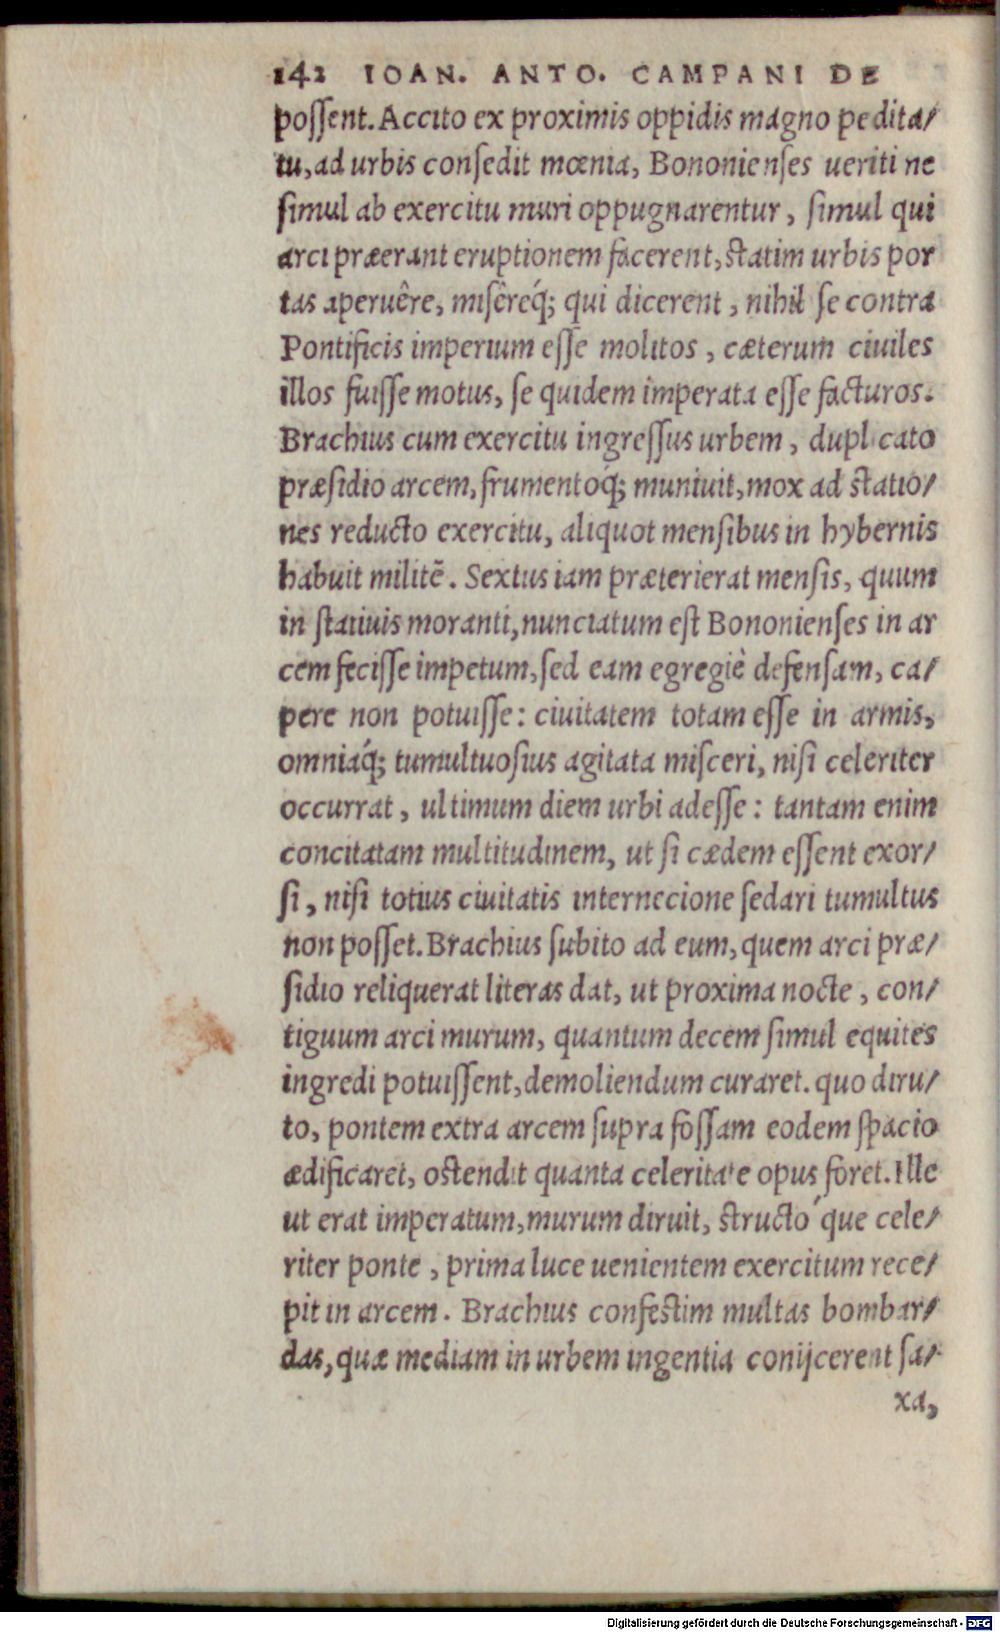 142 IOAN. ANTO. CAMPANI DE
possent. Accito ex proximis oppidis magno pedita/
tu, ad urbis consedit mœnia, Bononienses ueriti ne
simul ab exercitu muri oppugnarentur, simul qui
arci præerant eruptionem facerent, statim urbis por
tas aperuêre, misêreq́; qui dicerent, nihil se contra
Pontificis imperium esse molitos, cæterum ciuiles
illos fuisse motus, se quidem imperata esse facturos.
Brachius cum exercitu ingressus urbem, dupl cato
præsidio arcem, frumentoq́; muniuit, mox ad statio/
nes reducto exercitu, aliquot mensibus in hybernis
habuit militē. Sextus iam præterierat mensis, quum
in statiuis moranti, nunciatum est Bononienses in ar
cem fecisse impetum, sed eam egregiè defensam, ca/
pere non potuisse: ciuitatem totam esse in armis,
omniaq́; tumultuosius agitata misceri, nisi celeriter
occurrat, ultimum diem urbi adesse: tantam enim
concitatam multitudinem, ut si cædem essent exor/
si, nisi totius ciuitatis internecione sedari tumultus
non posset. Brachius subito ad eum, quem arci præ/
sidio reliquerat literas dat, ut proxima nocte, con/
tiguum arci murum, quantum decem simul equites
ingredi potuissent, demoliendum curaret. quo diru/
to, pontem extra arcem supra fossam eodem spacio
ædificaret, ostendit quanta celeritate opus foret. Ille
ut erat imperatum, murum diruit, structó que cele/
riter ponte, prima luce uenientem exercitum rece/
pit in arcem. Brachius confestim multas bombar/
das, quæ mediam in urbem ingentia conijcerent sa/
xa,
Digitalisierung gefördert durch die Deutsche Forschungsgemeinschaft - DFG